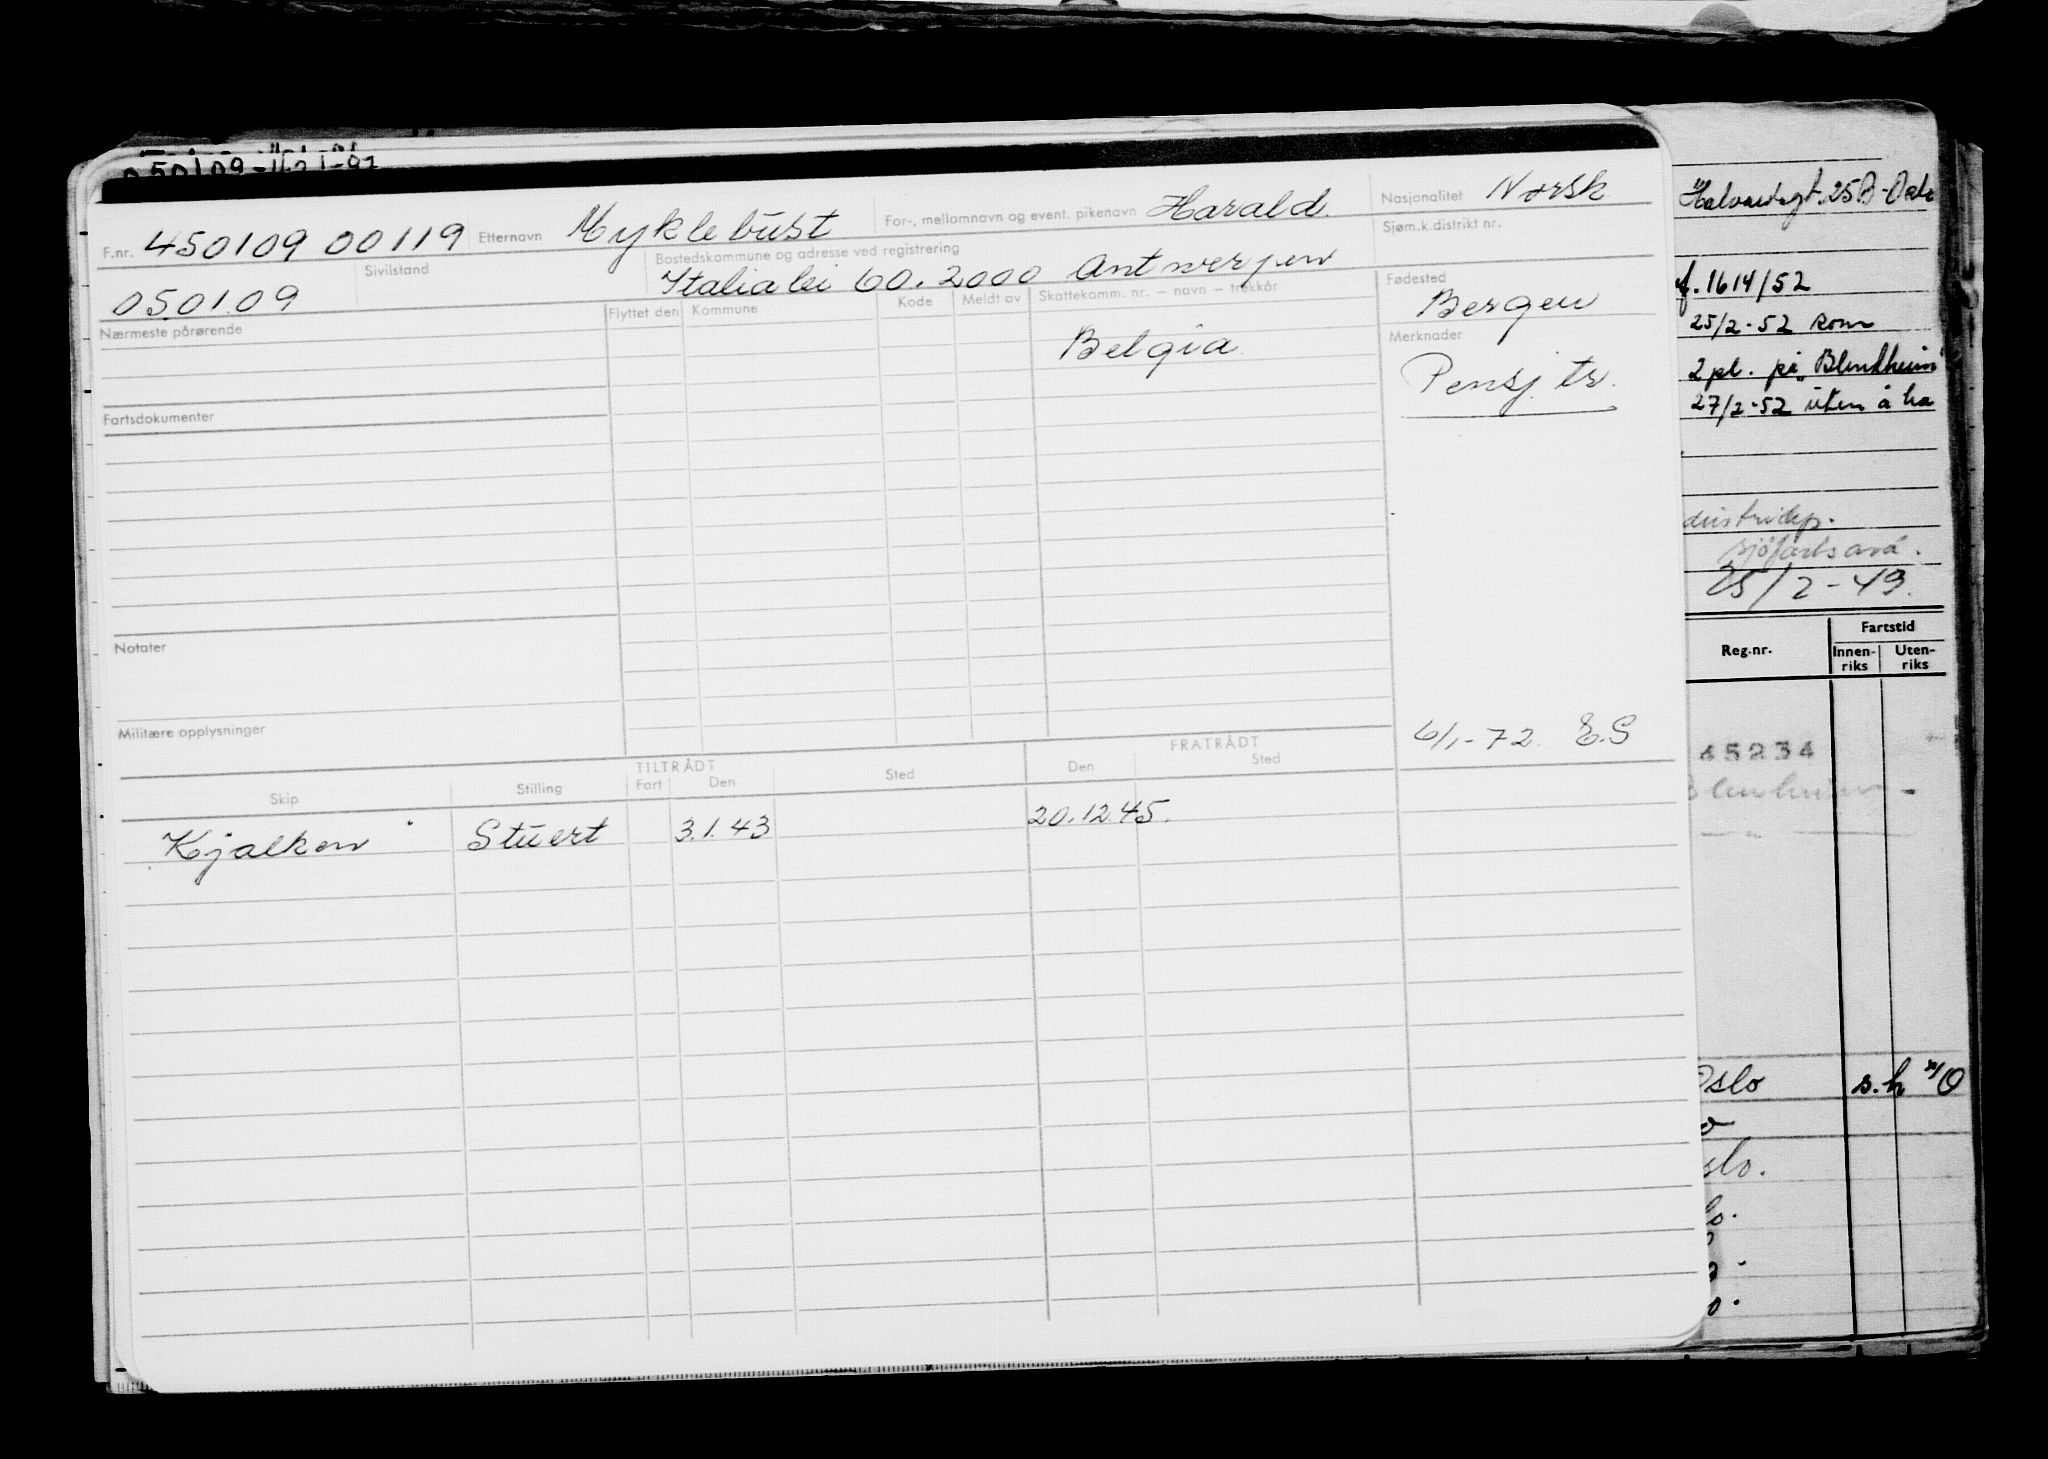 050109-
F.nr. 450109 00119 Etternavn Myklebust For-, mellomnavn og event. pikenavn Harald. Nasjonalitet Norsk
Sivilstand Bostedskommune og adresse ved registrering Sjøm.k.distrikt nr.
050109 Italialei 60. 2000 Antwerpen
Nærmeste pårørende Flyttet den Kommune Kode Meldt av Skattekomm. nr. – navn – trekkår Fødested
Bergen
Belgia Merknader
Pensj. tr.
Fartsdokumenter
Notater
Militære opplysninger
6/1-72 E.S
TILTRÅDT FRATRÅDT
Skip Stilling Fart Den Sted Den Sted
Kjalken Stuert 3.1.43 20.12.45.
25B-
f. 1614/52
25/2-52 som
2 pl. på "Blenheim"
27/2-52 uten å ha
25/2-49.
Reg.nr. Fartstid
Innen-riks Uten-riks
45234
Oslo s.h
slo.